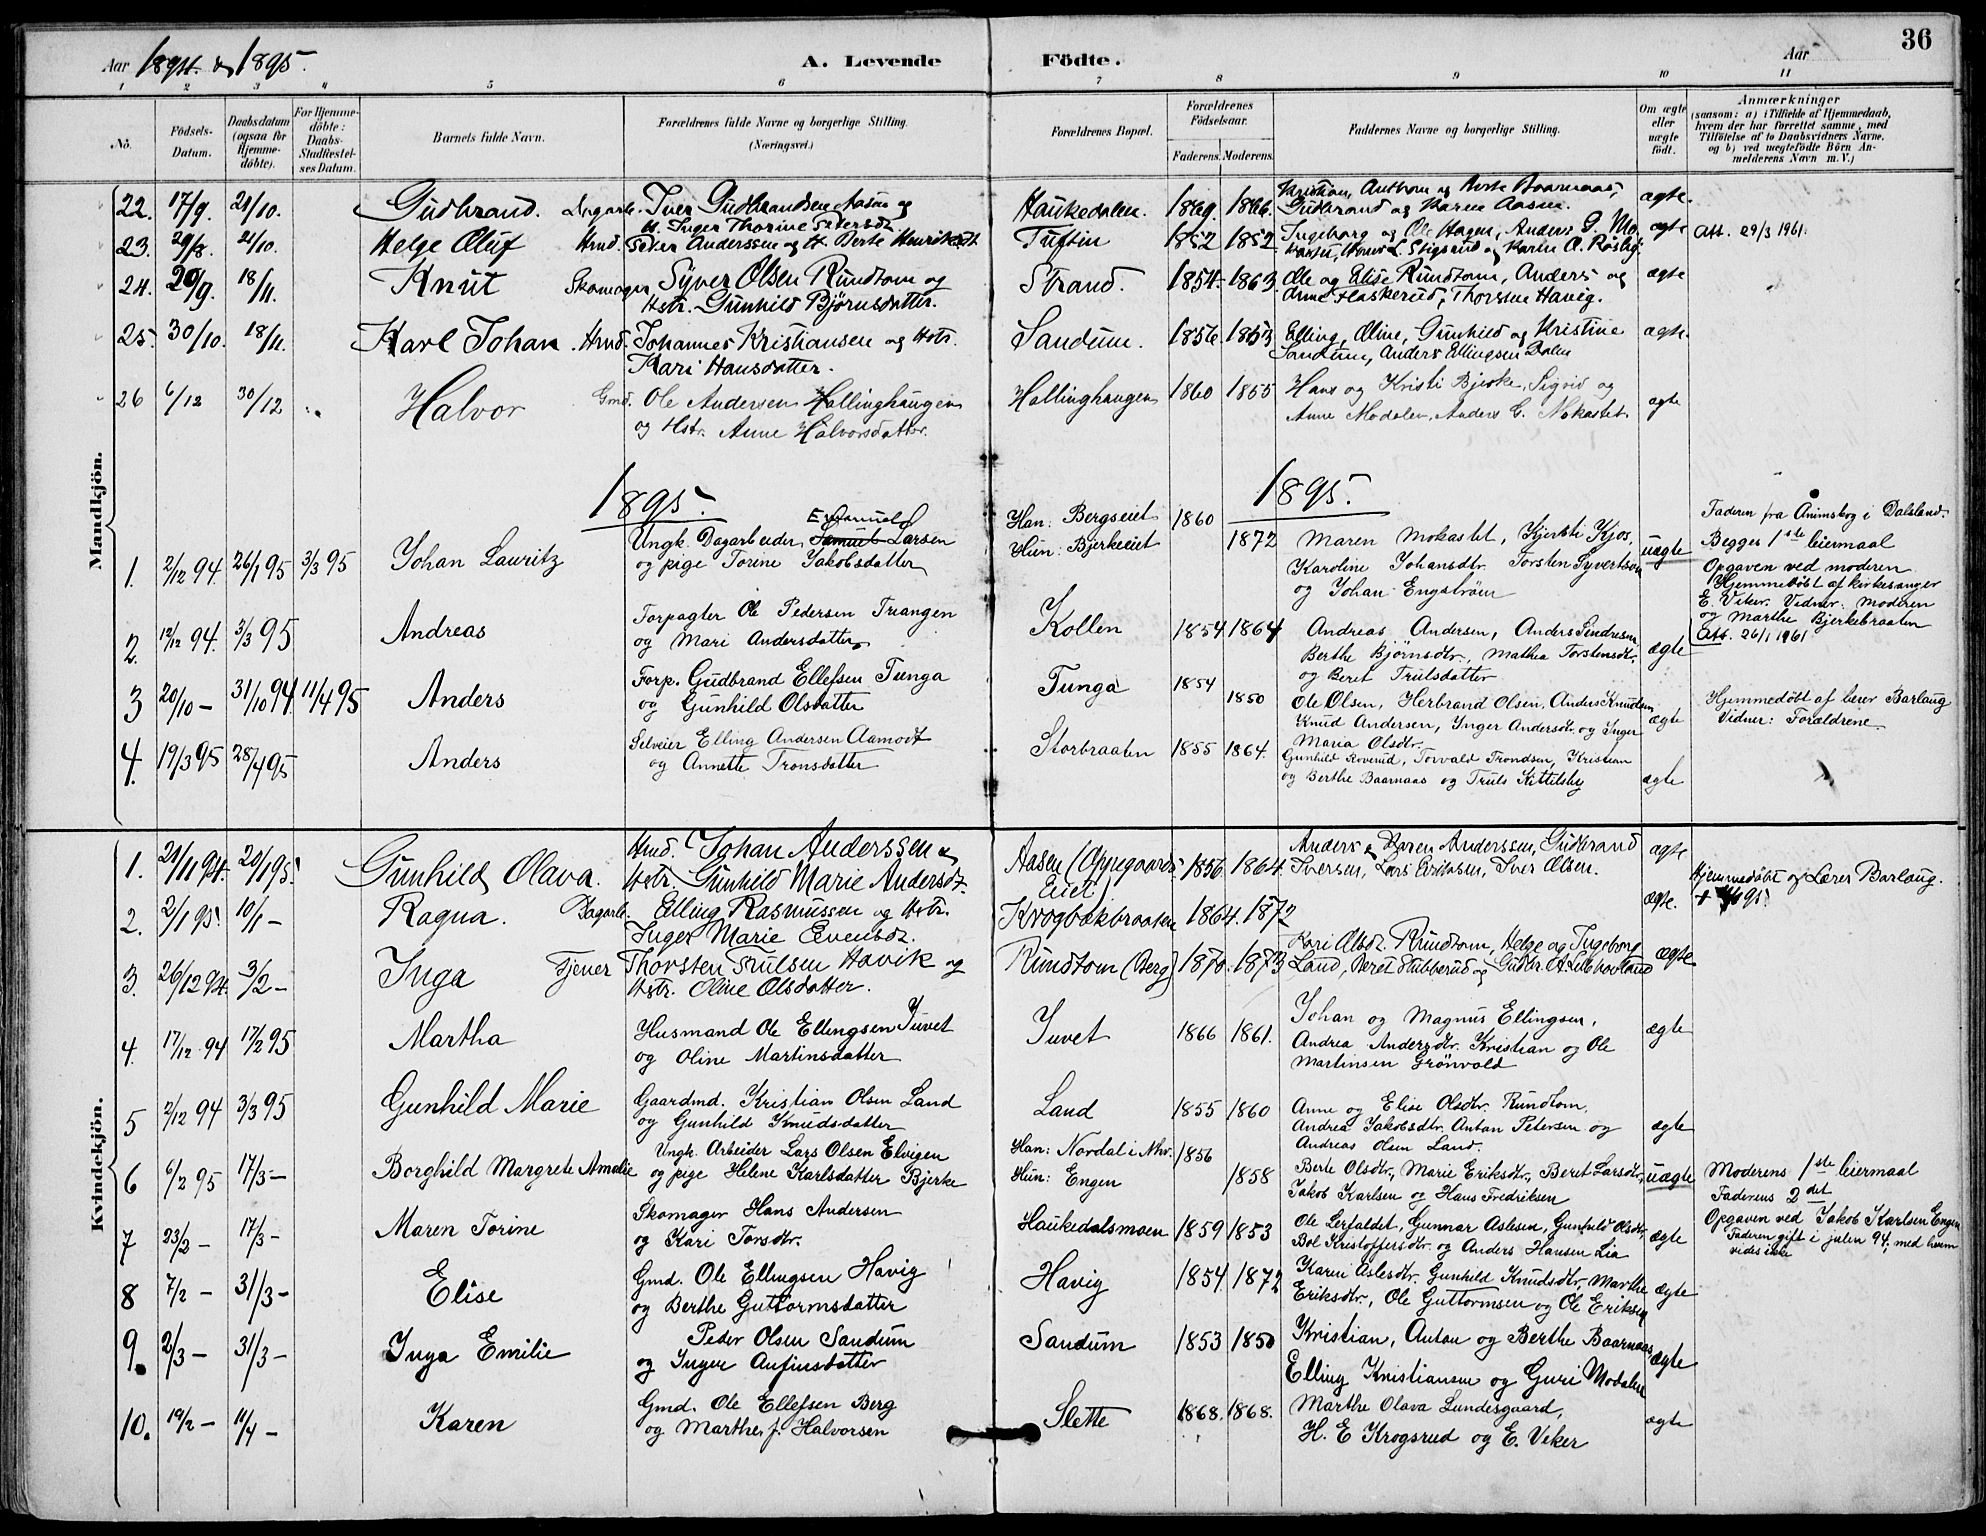 36
Aar 1894 & 1895.
A. Levende Födte.
Aar
1 2 3 4 5 6 7 8 9 10 11
No.
Födsels-Datum.
Daabsdatum (ogsaa for Hjemmedöbte).
For Hjemmedöbte: Daabs-Stadfæstelses Datum.
Barnets fulde Navn.
Forældrenes fulde Navne og borgerlige Stilling. (Næringsvei.)
Forældrenes Bopæl.
Forældrenes Födselsaar.
Faderens. Moderens.
Faddernes Navne og borgerlige Stilling.
Om ægte eller uægte födt.
Anmærkninger
(saasom: a) i Tilfælde af Hjemmedaab, hvem der har forrettet samme, med Tilföielse af to Daabsvidners Navne, og b) ved uægtefödte Börn Anmelderens Navn m. V.)
Mandkjön.
22. 17/9. 21/10. Gudbrand. Dagarb. Iver Gudbrandsen Aasen og Haukedalen. 1869. 1866. Kristian, Anthon og Berte Baarnaas, ægte.
H. Inger Thorine Pedersdt. Gudbrand og Karen Aasen.
23. 29/8. 21/10. Helge Oluf Hmd. Peder Anderssen og H. Berte Henriksdt. Tuftin 1852 1852 Ingeborg og Ole Hagen, Anders G. Mo ægte Att. 29/3 1961.
24. 20/9. 18/11. Knut Skomager Syver Olsen Rundtom og Strand. 1854. 1863. Ole og Elise Rundtom, Anders og ægte
Hstr. Gunhild Björnsdatter. Anne Haskerud, Thorsten Havig.
25. 30/10. 18/11. Karl Johan. Hmd. Johannes Kristiansen og Hstr. Sandum. 1856. 1853. Elling, Oline, Gunhild og Kristine ægte.
Kari Hansdatter. Sandum, Anders Ellingsen Dalen
26 6/12 30/12 Halvor Gmd. Ole Andersen Hallinghaugen Hallinghaugen 1860 1855 Hans og Kristi Bjerke, Sigrid og ægte
og Hstr. Anne Halvorsdatter. Anne Modalen, Anders G. Mokastet.
1895. 1895.
1. 2/12 94. 26/1 95 3/3 95 Johan Lauritz Ungk. Dagarbeider Samuel Emanuel Larsen Han: Bergseiet 1860 Maren Mokastet, Kjersti Kjos, uægte Faderen fra Ånimskog i Dalsland.
og pige Torine Jakobsdatter Hun: Bjerkeeiet 1872 Karoline Johansdtr. Torsten Syvertsen Begges 1ste leiermaal
og Johan Engström Opgaven ved moderen
Hjemmedöbt af kirkesanger
E. Veker. Vidner: Moderen
og Marthe Bjerkebraaten
2. 12/12 94. 3/3 95 Andreas Forpagter Ole Pedersen Triangen Kollen 1854 1864 Andreas Andersen, Anders Sendresen ægte Att. 26/1 1961
og Mari Andersdatter Berthe Björnsdtr., Mathea Torstensdtr.
og Beret Trulsdatter
3 20/10 - 31/10 94 11/4 95 Anders Forp. Gudbrand Ellefsen Tunga Tunga 1854 1850 Ole Olsen, Herbrand Olsen, Anders Knudsen ægte Hjemmedöbt af lærer Barlaug
og Gunhild Olsdatter Knud Andersen, Inger Andersdtr. og Inger Vidner: Forældrene
Maria Olsdtr.
4. 19/3 95 28/4 95 Anders Selveier Elling Andersen Aamodt Storbraaten 1855 1864. Gunhild Roverud, Torvald Trondsen, Kristian ægte
og Annette Tronsdatter og Berthe Baarnaas og Truls Kittelsby
Kvindekjön.
1. 21/11 94. 20/1 95. Gunhild Olava. Hmd. Johan Anderssen & Aasen (Oppegaards Eiet) 1856. 1864. Anders & Karen Anderssen, Gudbrand ægte
Hstr. Gunhild Marie Andersdt. Iversen, Lars Eriksen, Iver Olsen.
2. 2/1 95. 10/1 - Ragna. Dagarb. Elling Rasmussen og Hstr. Krogbækbraaten 1864. 1872 ægte. Hjemmedöbt af Lærer Barlaug.
Inger Marie Evensdt.
3. 26/12 94. 3/2 - Inga Tjener Thorsten Trulsen Havik og Rundtom (Berg) 1870. 1873 Kari Olsdt. Rundtom, Helge og Ingeborg ægte
Hstr. Oline Olsdatter. Land, Beret Stubberud og
4. 17/12 94 17/2 95 Martha Husmand Ole Ellingsen Juvet Juvet 1866 1861. Johan og Magnus Ellingsen, ægte
og Oline Martinsdatter Andrea Andersdtr. Kristian og Ole
Martinsen Grönvold
5 2/12 94 3/3 95 Gunhild Marie Gaardmd. Kristian Olsen Land Land 1855 1860 Anne og Elise Olsdtr. Rundtom, ægte
og Gunhild Knudsdatter Andrea Jakobsdtr. Anton Petersen og
Andreas Olsen Land.
6 6/2 95 17/3 - Borghild Margrete Amalie Ungk. Arbeider Lars Olsen Elvigen Han: Nordal i Nkr. 1856 Berte Olsdtr., Marie Eriksdtr., Beret Larsdtr., uægte Moderens 1ste leiermaal
og pige Helene Karlsdatter Bjerke Hun: Engen 1858 Jakob Karlsen og Hans Fredriksen Faderens 2det
Opgaven ved Jakob Karlsen Engen
Faderen gift i julen 94, med hvem
vides ikke
7 23/2 - 17/3 - Maren Torine Skomager Hans Andersen Haukedalsmoen 1859 1853 Ole Lerfaldet, Gunnar Aslesen, Gunhild Olsdtr, ægte
og Kari Torsdtr. Bol Kristoffersdtr. og Anders Hansen Lia
8 7/2 - 31/3 - Elise Gmd. Ole Ellingsen Havig Havig 1854 1872 Karen Aslesdtr. Gunhild Knudsdtr. Marthe ægte
og Berthe Guttormsdatter Eriksdtr., Ole Guttormsen og Ole Eriksen
9. 2/3 - 31/3 - Inga Emilie Peder Olsen Sandum Sandum 1853 1850 Kristian, Anton og Berthe Baarnaas ægte
og Inger Anfinsdatter Elling Kristiansen og Guri Modalen
10. 19/2 - 11/4 - Karen Gmd. Ole Ellefsen Berg Slette 1868. 1868. Marthe Olava Lundesgaard, ægte
og Marthe f. Halvorsen H. E Krogsrud og E. Veker